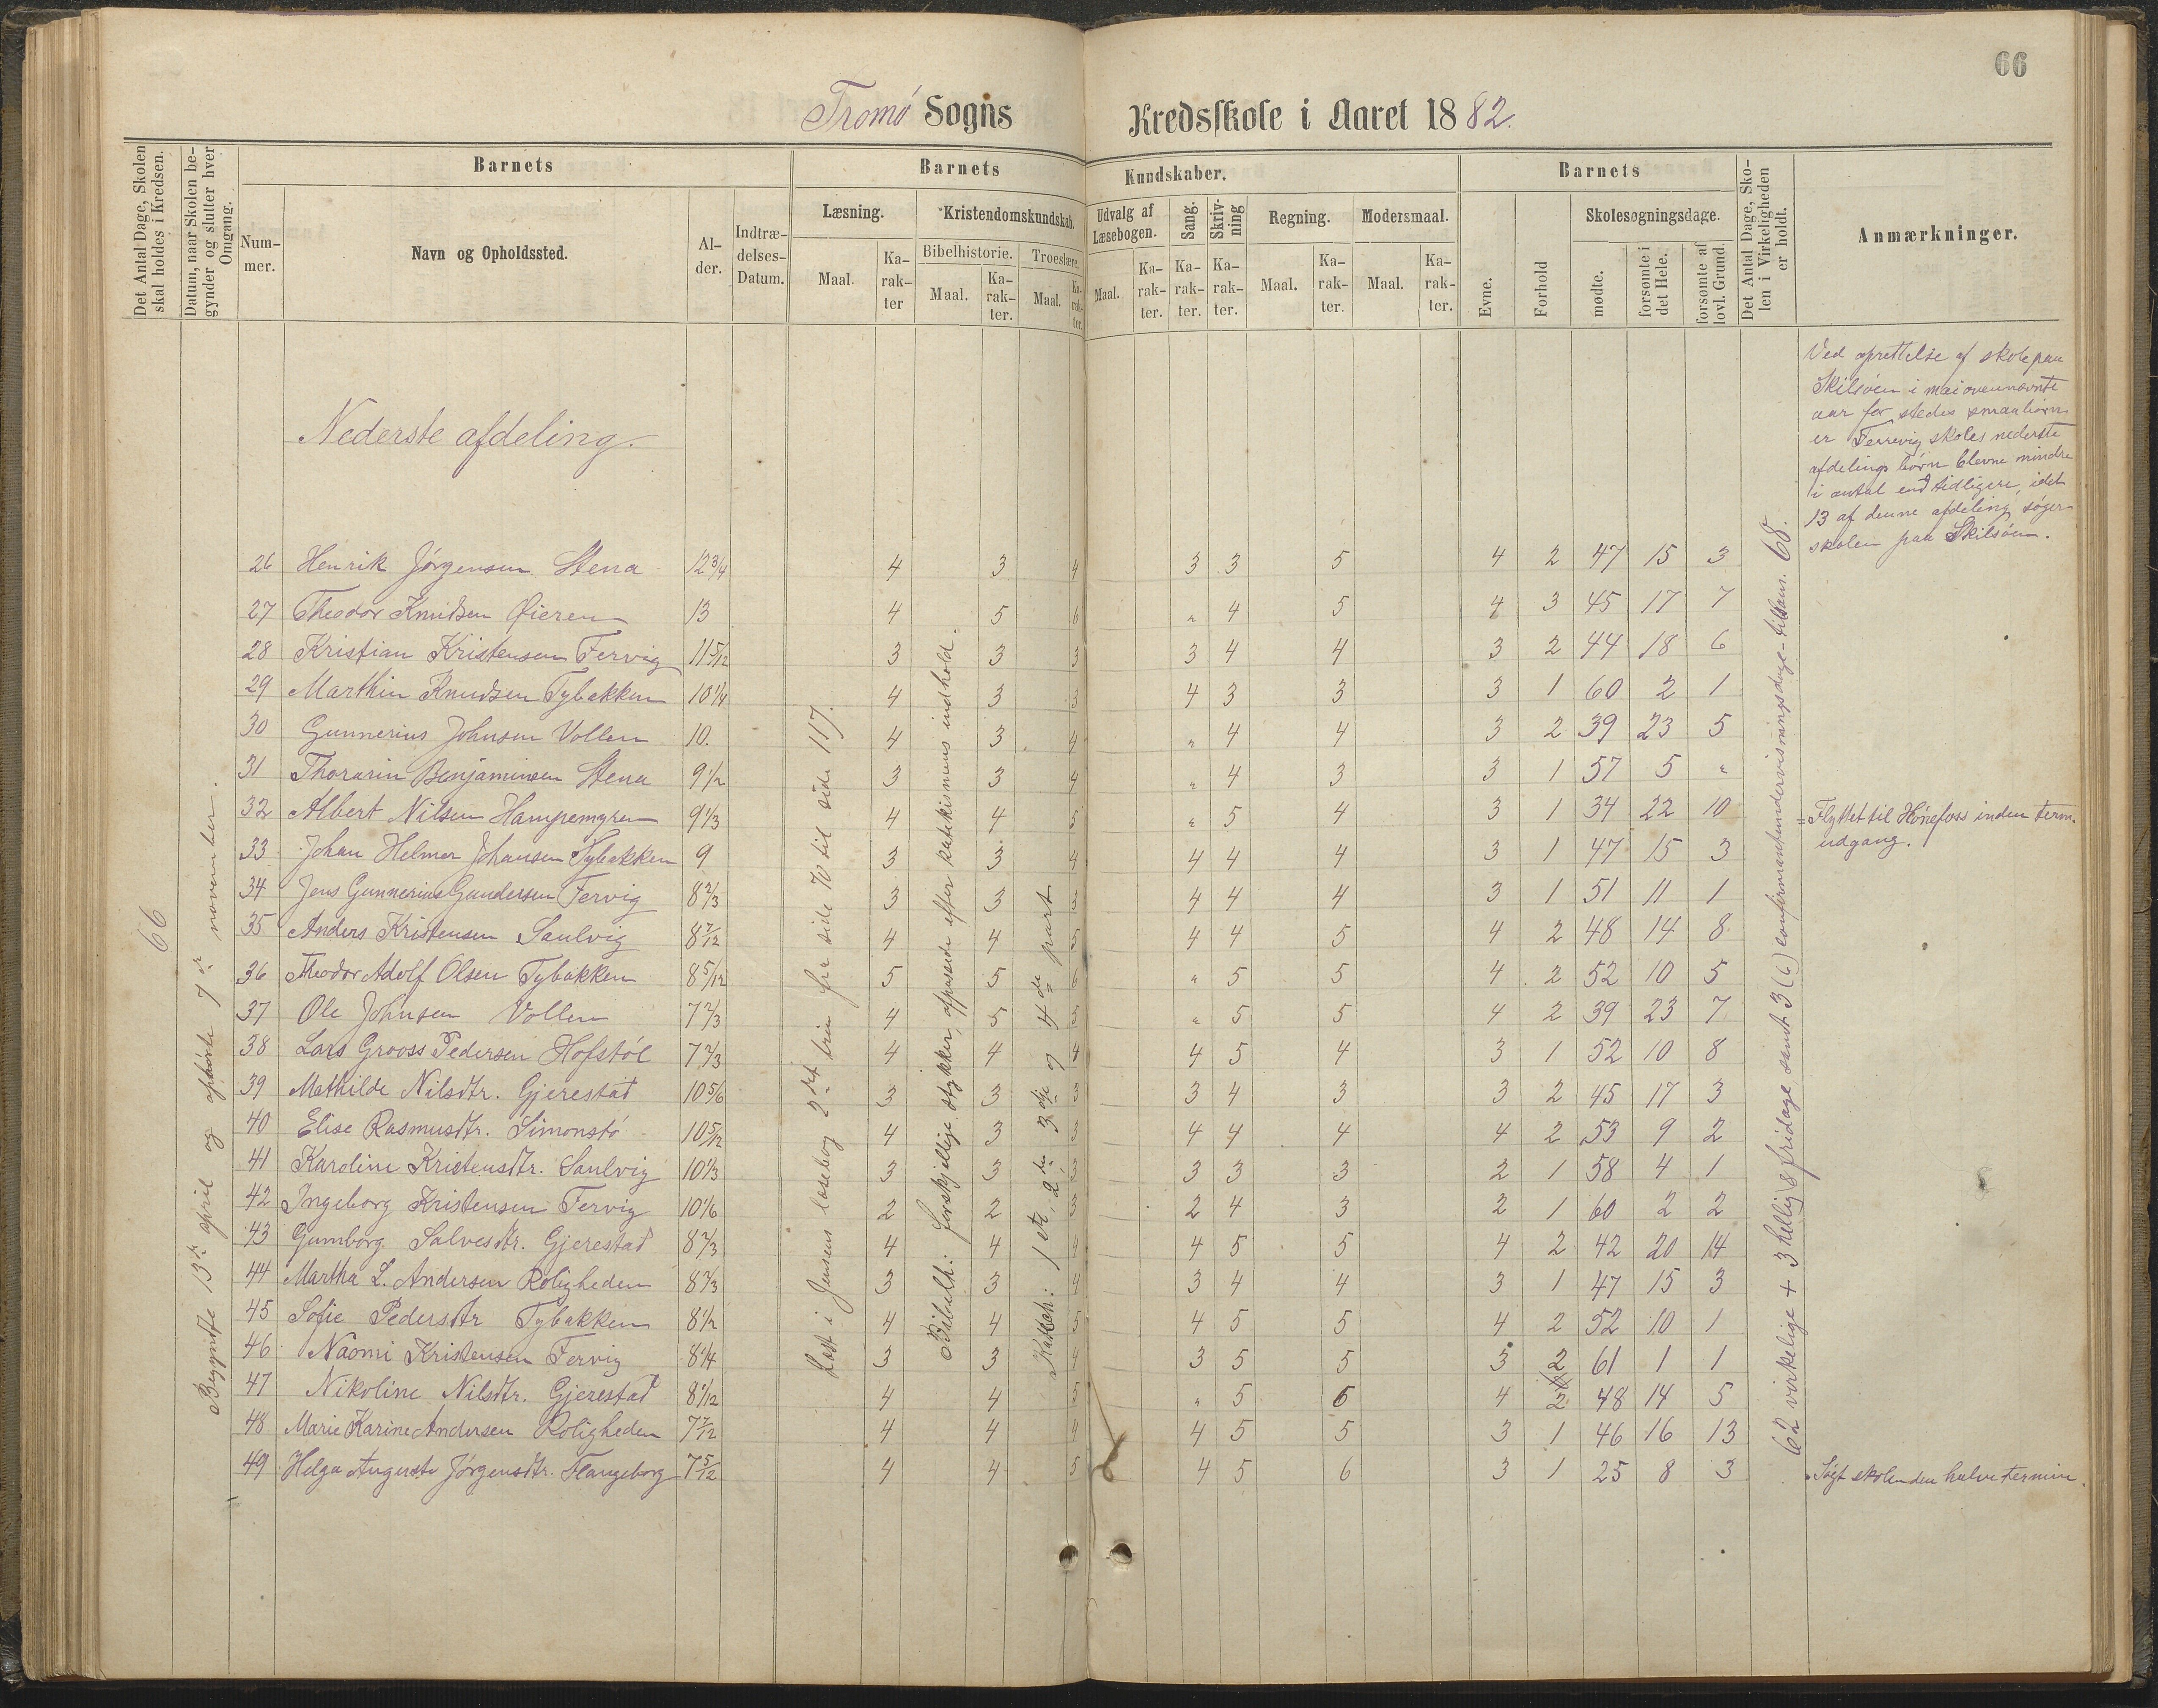 66
Tromø Sogns Kredsskole i Aaret 1882.
Det Antal Dage, Skolen skal holdes i Kredsen.
Datum, naar Skolen begynder og slutter hver Omgang.
Barnets
Nummer.
Navn og Opholdssted.
Alder.
Indtrædelses-Datum.
Barnets Kundskaber.
Læsning.
Maal. Karakter
Kristendomskundskab.
Bibelhistorie.
Maal. Karakter.
Troeslære.
Maal. Karakter.
Udvalg af Læsebogen.
Maal. Karakter.
Sang.
Karakter.
Skrivning
Karakter.
Regning.
Maal. Karakter.
Modersmaal.
Maal. Karakter.
Barnets
Evne.
Forhold
Skolesøgningsdage.
mødte.
forsømte i det Hele.
forsømte af lovl. Grund.
Det Antal Dage, Skolen i Virkeligheden er holdt.
Anmærkninger.
Ved oprettelse af skole paa
Skilsøen i mai ovennævnte
aar for stedes smaabørn
er Færvig skoles nederste
afdelings børn blevne mindre
i antal end tidligere, idet
13 af denne afdeling søger
skolen paa Skilsøen.
Nederste afdeling.
66
Begyndte 13de april og ophørte 7de november.
Læst i Jensens læsebog 2det trin fra side 70 til side 117.
Bibelh: forskjellige stykker, oppassede efter katekismens indhold.
Katek: 1ste, 2den, 3dje og 4de part
62 virkelige + 3 hellig & fridage samt 3 (6) confirmantundervisningsdage - tilsam. 68.
26 Henrik Jørgensen Stena 12 3/4 4 3 4 3 3 5 4 2 47 15 3
27 Theodor Knudsen Øieren 13 4 5 6 " 4 5 4 3 45 17 7
28 Kristian Kristensen Fervig 11 5/12 3 3 3 3 4 4 3 2 44 18 6
29 Marthin Knudsen Tybakken 10 1/4 4 3 3 4 3 3 3 1 60 2 1
30 Gunnerius Johnsen Vollen 10. 4 3 4 " 4 4 3 2 39 23 5
31 Thorarin Benjaminsen Stena 9 1/2 3 3 4 " 4 3 3 1 57 5 "
32 Albert Nilsen Hampemyren 9 1/3 4 4 5 " 5 4 3 1 34 22 10 = Flyttet til Hønefoss inden term. udgang.
33 Johan Helmer Johansen Tybakken 9 3 3 4 4 4 4 3 1 47 15 3
34 Jens Gunnerius Gundersen Fervig 8 2/3 3 3 3 4 4 4 3 1 51 11 1
35 Anders Kristensen Saulvig 8 7/12 4 4 5 4 4 5 4 2 48 14 8
36 Theodor Adolf Olsen Tybakken 8 5/12 5 5 6 " 5 5 4 2 52 10 5
37 Ole Johnsen Vollen 7 2/3 4 5 5 " 5 5 4 2 39 23 7
38 Lars Grooss Pedersen Hofstøl 7 2/3 4 4 4 4 5 4 3 1 52 10 8
39 Mathilde Nilsdtr. Gjerestad 10 5/6 3 3 3 3 4 3 3 2 45 17 3
40 Elise Rasmusdtr. Simonstø 10 5/12 4 3 3 4 4 4 4 2 53 9 2
41 Karoline Kristensdtr. Saulvig 10 1/3 3 3 3 3 3 3 2 1 58 4 1
42 Ingeborg Kristensen Fervig 10 1/6 2 2 3 2 4 3 2 1 60 2 2
43 Gumborg Salvesdtr. Gjerestad 8 2/3 4 4 4 4 5 5 4 2 42 20 14
44 Martha L. Andersen Roligheden 8 2/3 3 3 4 3 4 4 3 1 47 15 3
45 Sofie Pedersdtr Tybakken 8 1/2 4 4 5 4 5 5 4 2 52 10 1
46 Naomi Kristensen Fervig 8 1/4 3 3 4 3 5 5 3 2 61 1 1
47 Nikoline Nilsdtr. Gjerestad 8 1/12 4 4 5 " 5 6 4 2 48 14 5
48 Marie Karine Andersen Roligheden 7 7/12 4 4 4 4 5 5 3 1 46 16 13
49 Helga Auguste Jørgensdtr. Flangeborg 7 5/12 4 4 5 4 5 6 3 1 25 8 3 Søgt skolen den halve termin.